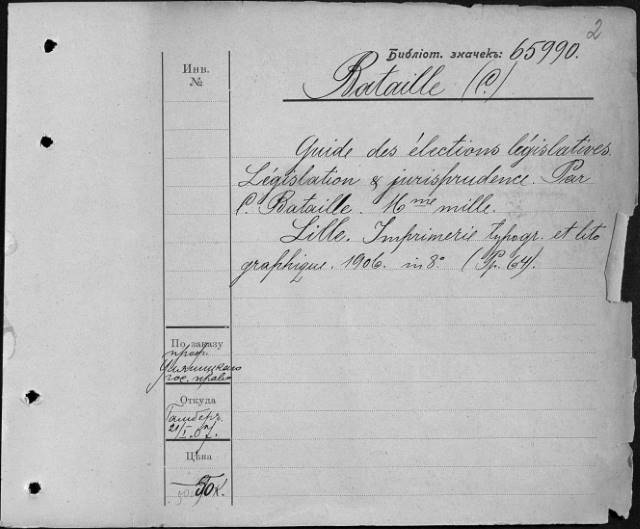 2
Библіот. значекъ: 65990.
Bataille (C.)
Инв.
№
Guide des élections législatives.
Législation & jurisprudence. Par
C. Bataille. 16me mille.
Lille. Imprimerie typogr. et lito
graphique. 1906. in 8°. (Pp. 64).
По заказу
проф.
гос. право
Откуда
21/I 07.
Цѣна
50 к.